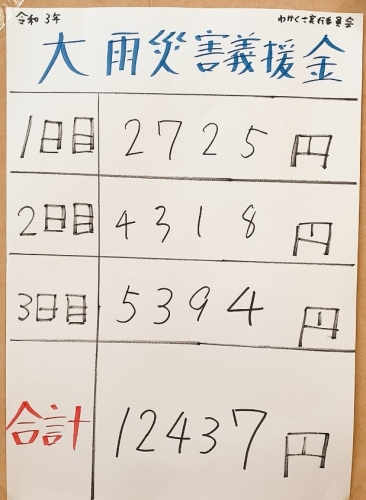 令和3年 わかくさ実行委員会
大雨災害義援金
1日目 2725円
2日目 4318円
3日目 5394円
合計 12437円